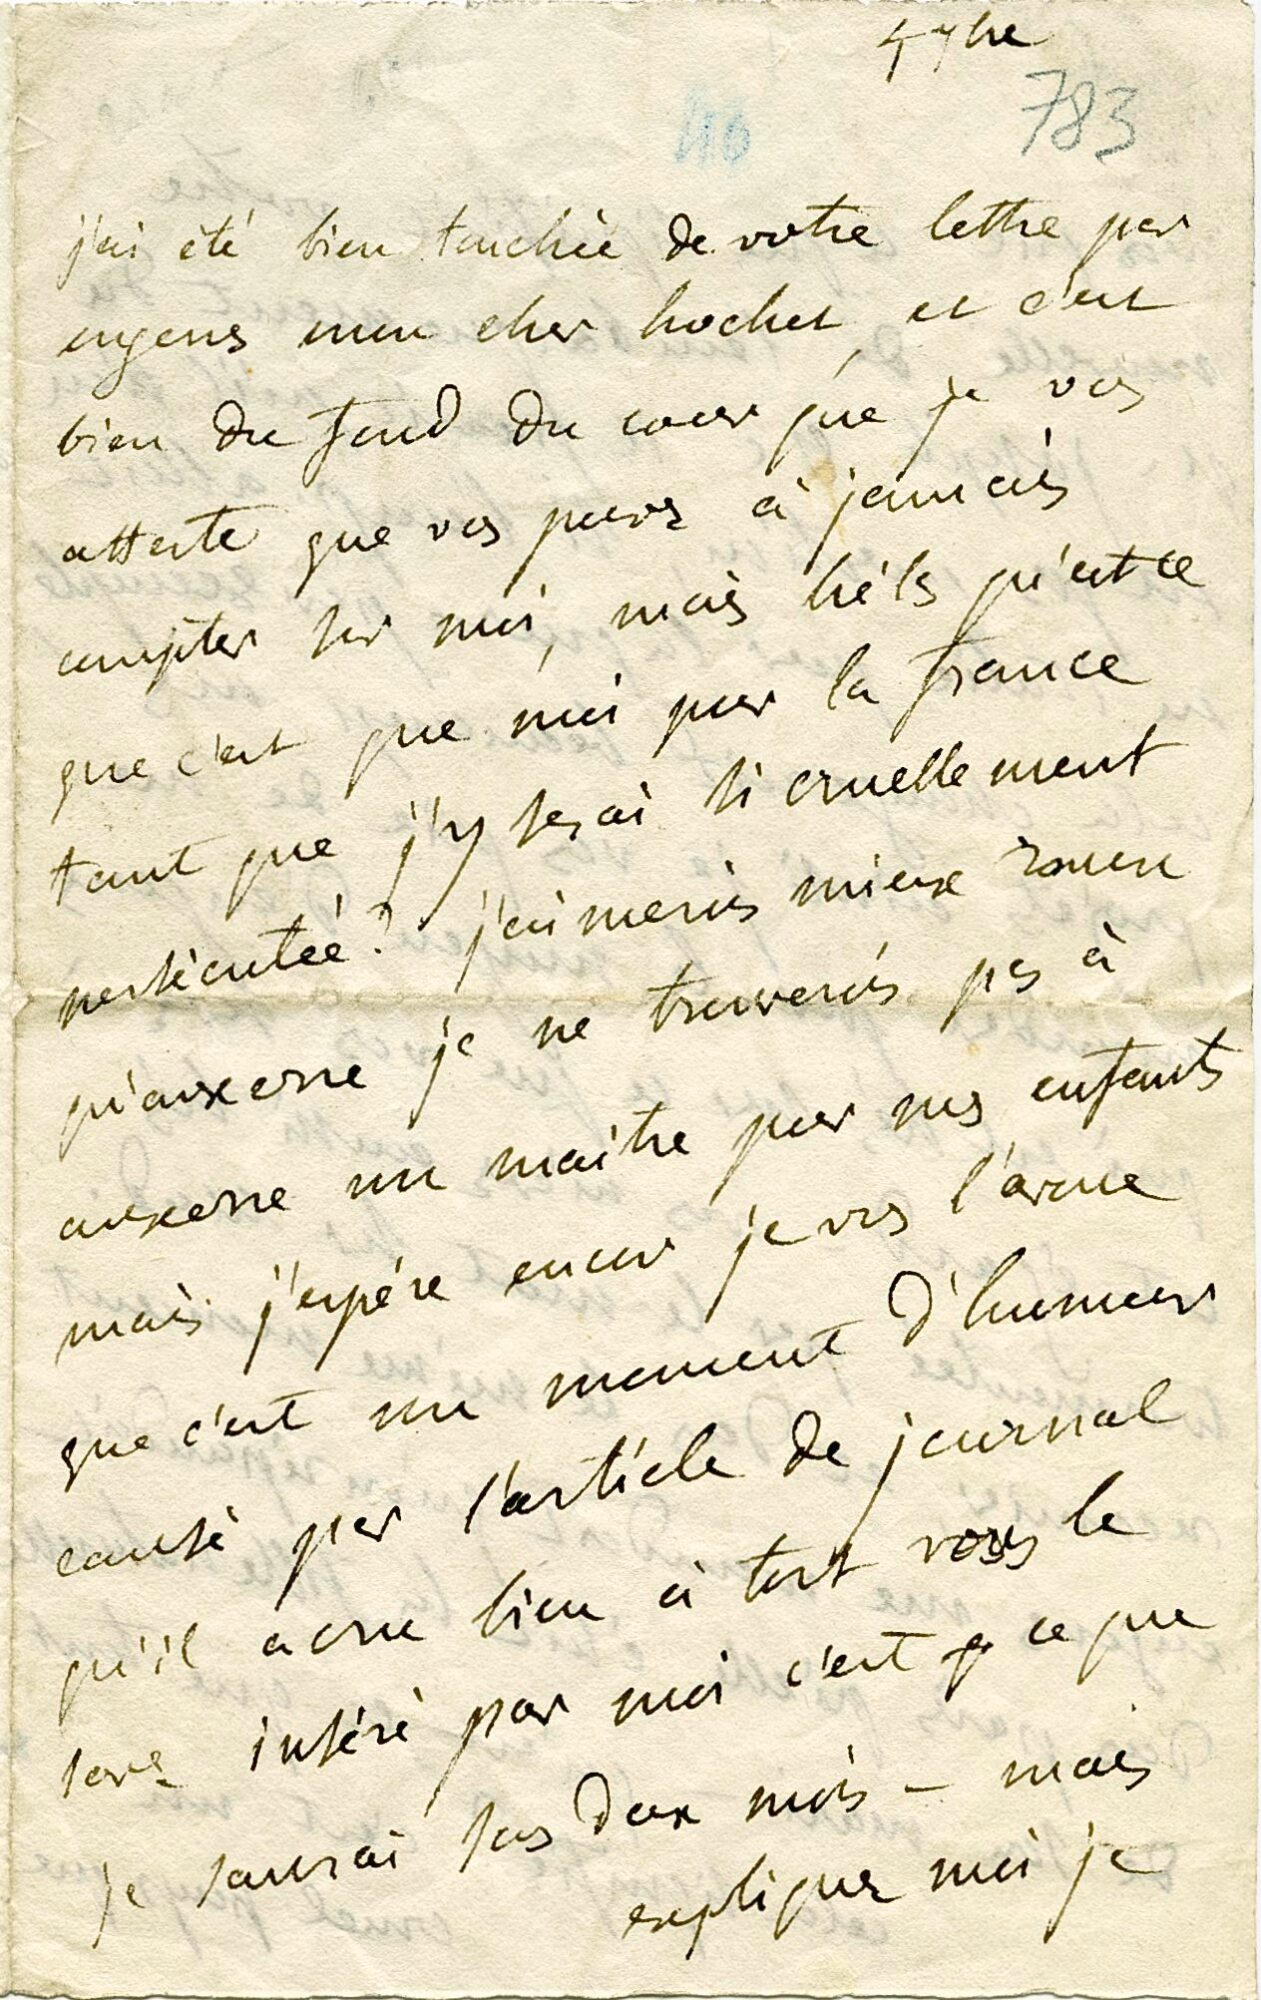 4 7bre
783
j'ai été bien touchée de votre lettre par
eugene mon cher hochet, et c'est
bien du fond du coeur que je vs
atteste que vs pouvez à jamais
compter sur moi, mais hélas qu'est ce
que c'est que moi pour la france
tant que j'y serai si cruellement
persécutée? j'aimerais mieux rouen
qu'auxerre je ne trouverais pas à
auxerre un maitre pour mes enfants
mais j'espére encor je vs l'avoue
que c'est un moment d'humeur
causé par l'article de journal
qu'il a cru bien à tort vous le
savez inséré par moi c'est ce que
je saurai ds deux mois – mais
expliquez moi je